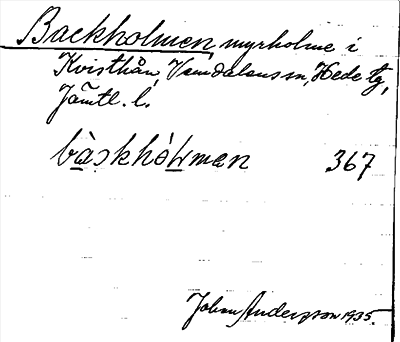 Backholmen, myrholme i
Kvisthån, Vemdalens sn, Hede tg,
Jämtl. l.
bàckhó̀lmen 367
Johan Andersson 1935.